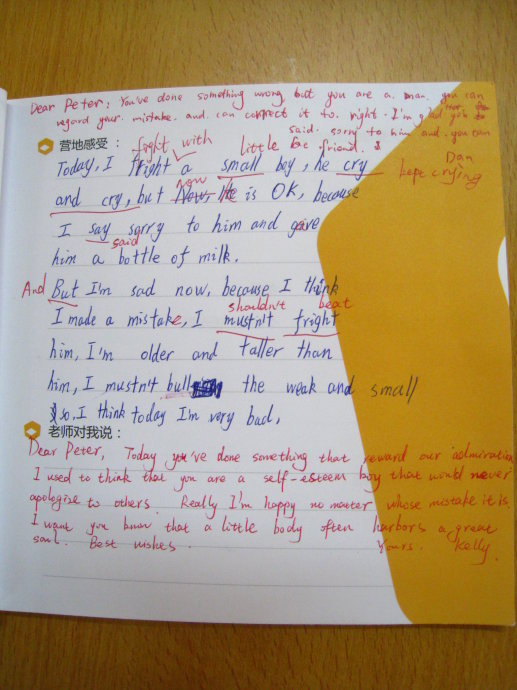 Dear Peter: You've done something wrong but you are a man. you can
regard your mistake and can correct it to right. I'm glad you
said sorry to him and you can
be friend.
营地感受：
fright with little
Today, I fright a small boy, he cry
Dan
kept crying
now
and cry, but Now, He is OK, because
I say sorry to him and gave
said
him a bottle of milk.
And But I'm sad now, because I think
shouldn't beat
I made a mistake, I mustn't fright
him, I'm older and taller than
him, I mustn't bull the weak and small
so, I think today I'm very bad,
老师对我说：
Dear Peter, Today you've done something that reward our admiration
I used to think that you are a self-esteem boy that would never
apologise to others. Really I'm happy no matter whose mistake it is.
I want you know that a little body often harbors a great
soul. Best wishes. Yours. Kelly